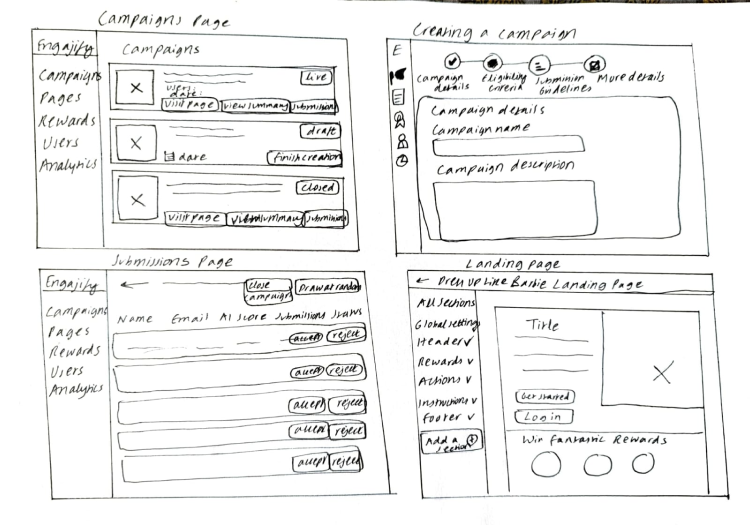 Campaigns Page
Engajify
Campaigns
Pages
Rewards
Users
Analytics
Campaigns
live
users:
date:
visit page
view summary
submissions
draft
date
finish creation
closed
visit page
view summary
submissions
Creating a campaign
E
Campaign details
Eligibility criteria
Submission Guidelines
More details
Campaign details
Campaign name
Campaign description
Submissions Page
Engajify
Campaigns
Pages
Rewards
Users
Analytics
close campaign
Draw at random
Name Email AI score Submissions Status
accept reject
accept reject
accept reject
accept reject
accept reject
Landing page
← Dress Up Like Barbie Landing Page
All sections
Global settings
Header v
Rewards v
Actions v
Instructions v
Footer v
Add a section +
Title
Get started
Log in
Win Fantastic Rewards